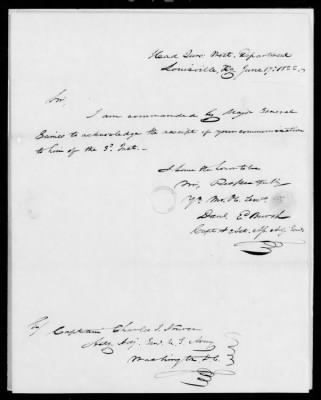 Head Qurs West. Department
Louisville, Ky June 17th 1826.
Sir,
I am commanded by Major General
Gaines to acknowledge the receipt of your communication
to him of the 3d Inst. —
I have the honor to be
Very Respectfully
Yr. Mo. Ob. Servt.
Danl. E Burch
Capt & Act. Asst Adj Genl.
To Captain Charles J. Nourse
Actg Adj. Genl. U. S. Army
Washington D.C.